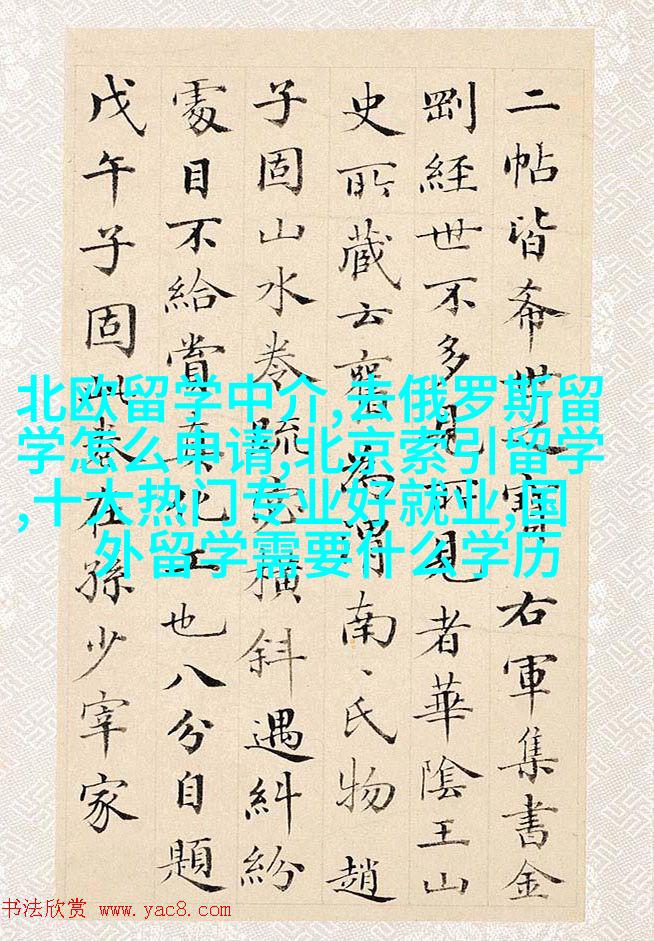 二帖皆希世之寶右軍集書金
剛經世不多見所見者華陰王山
史所藏云舊為渭南、氏物趙
子固山水卷疏宕橫斜遇糾紛
處目不給賞真化工也八分自題
戊午子固此卷在孫少宰家
北欧留学中介,去俄罗斯留
学怎么申请,北京索引留学
,十大热门专业好就业,国
外留学需要什么学历
书法欣赏 www.yac8.com